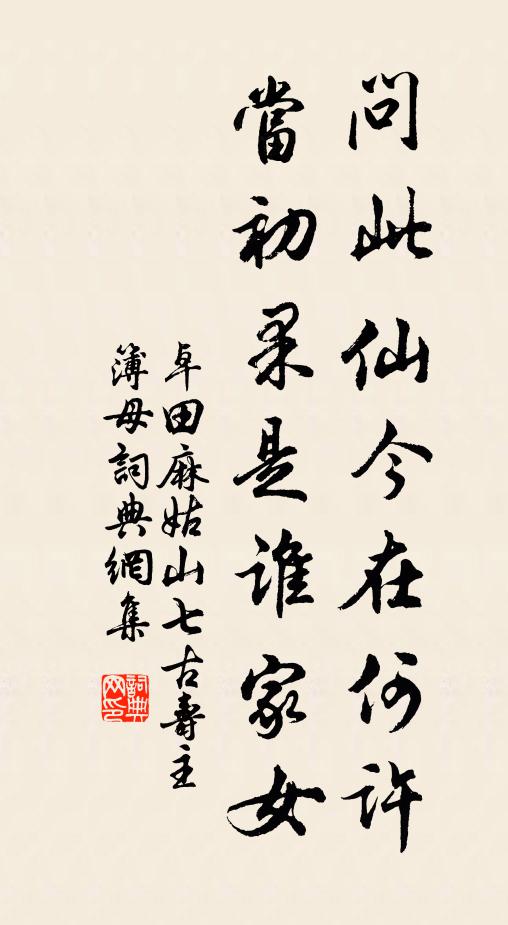 問此仙今在何許
當初果是誰家女
卓田麻姑山七古壽主
簿母詞典網集
詞典網印